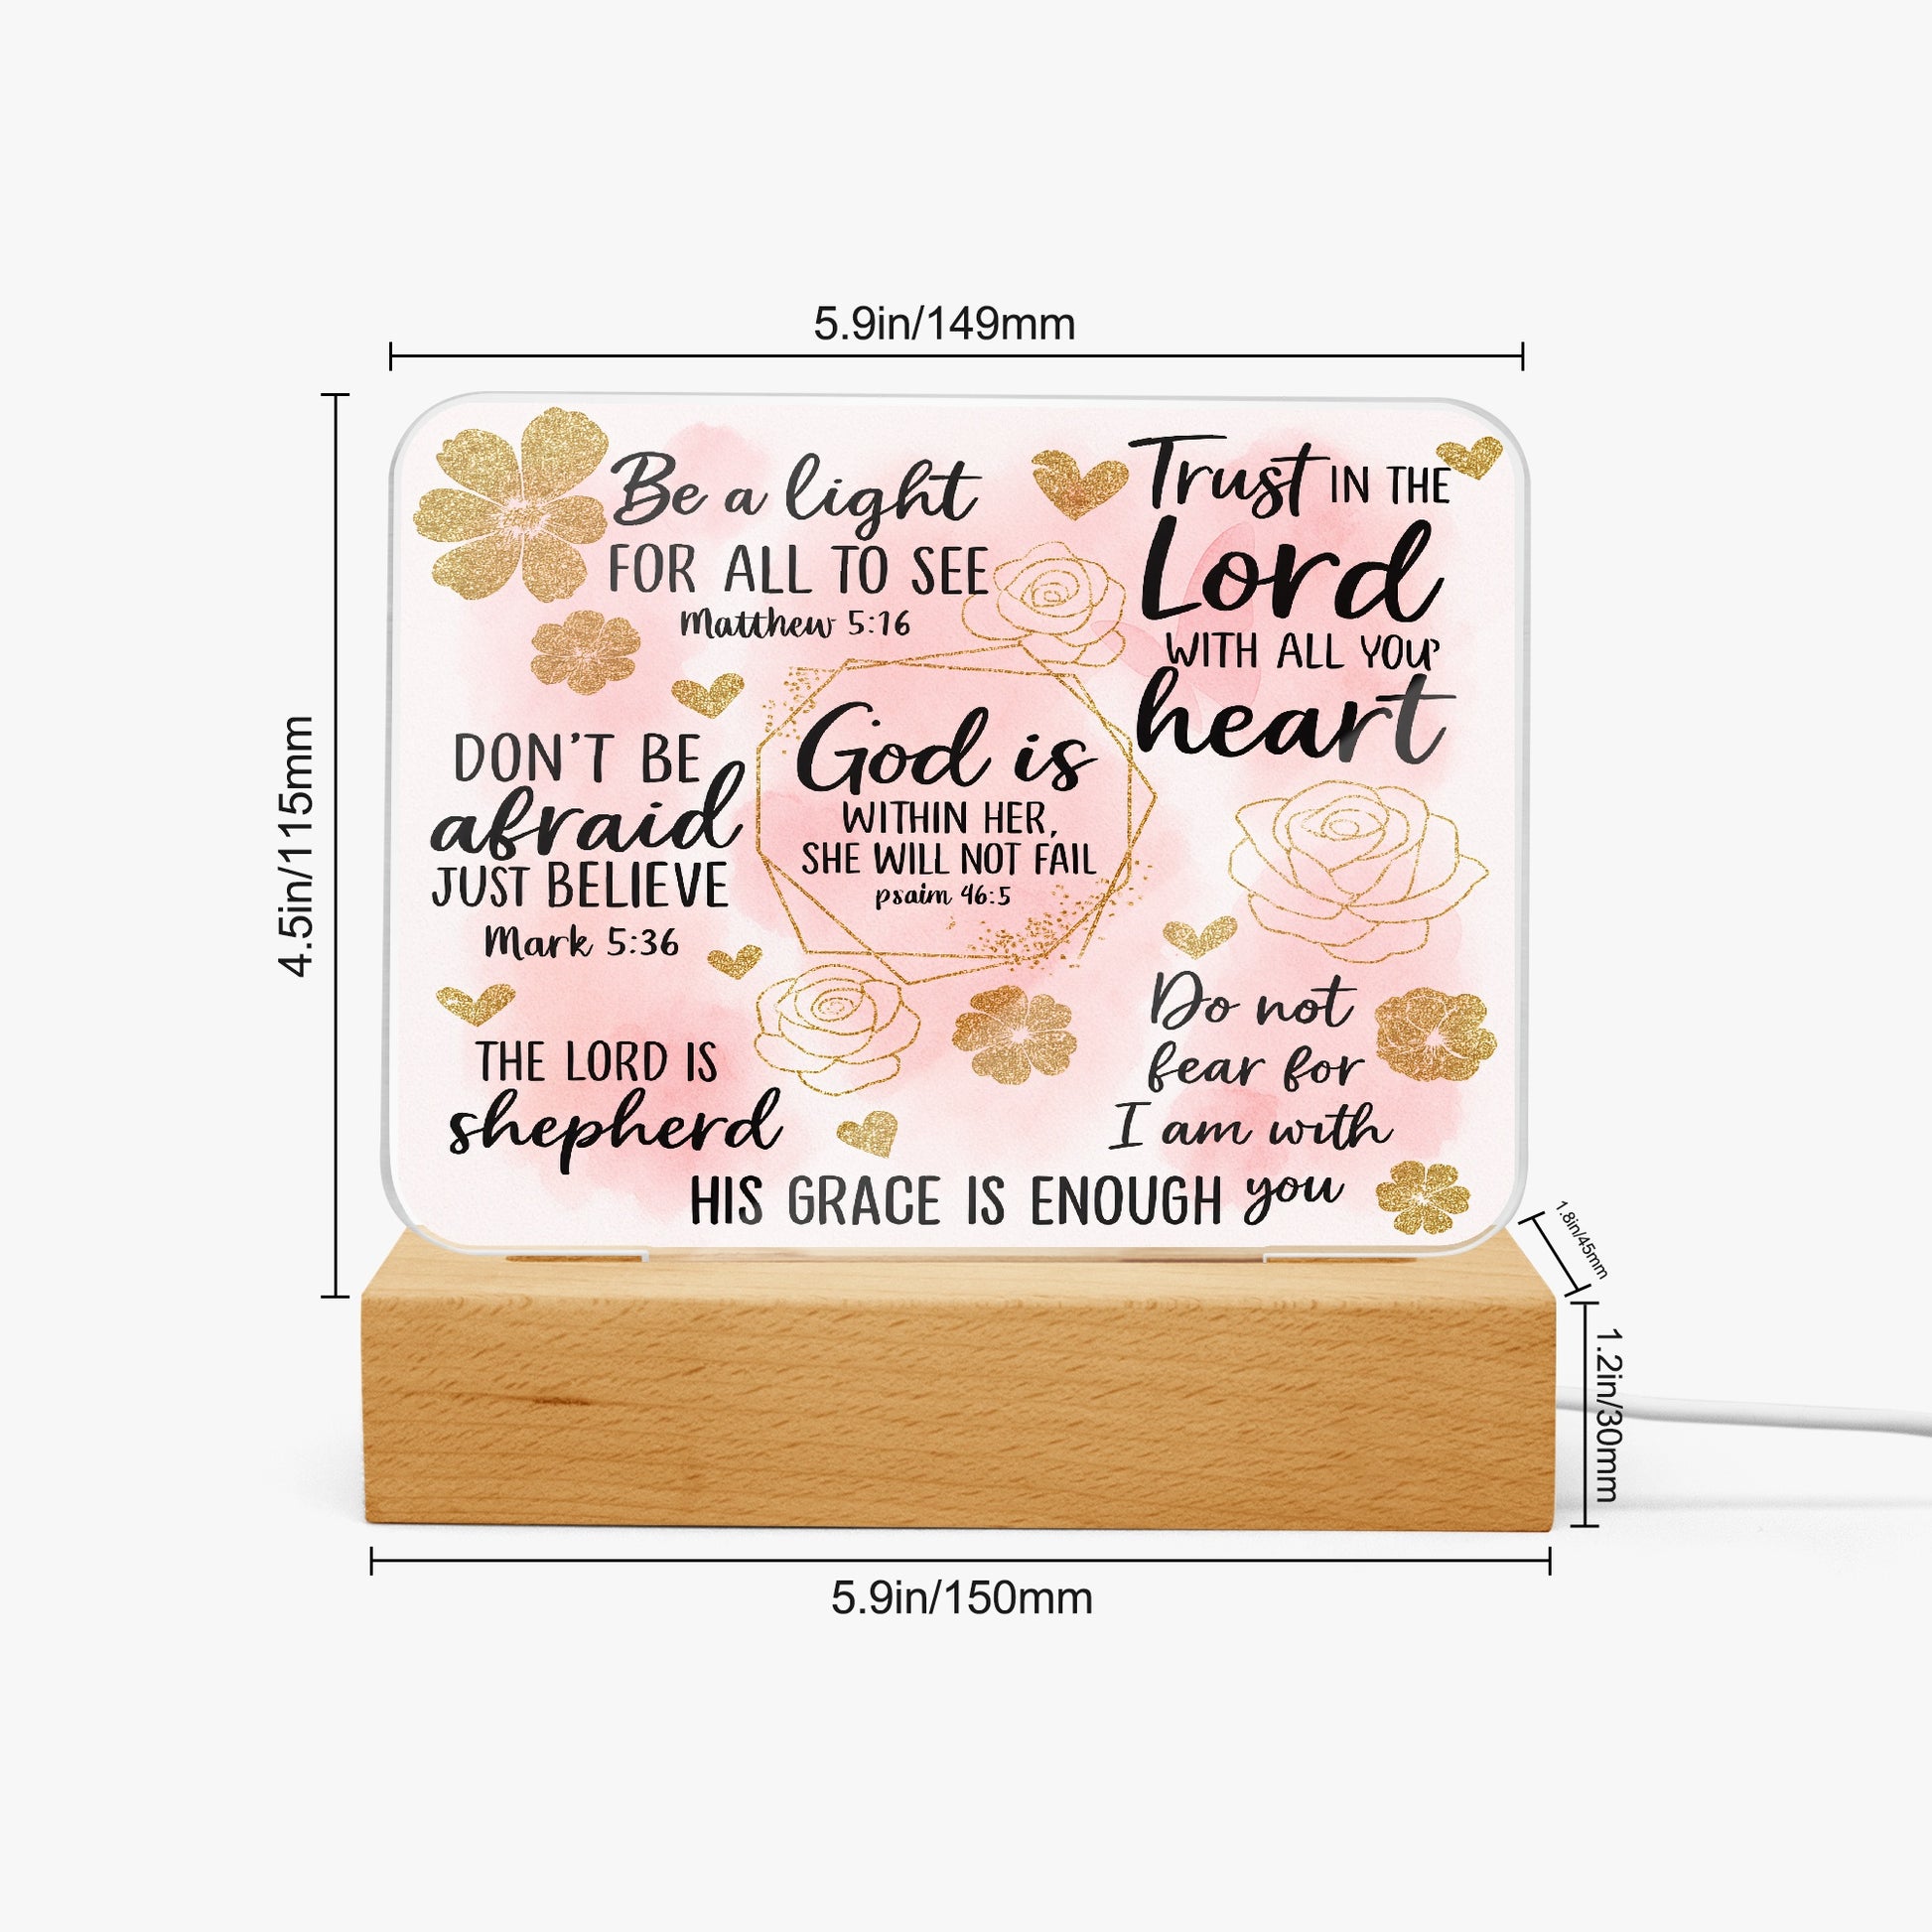 5.9in/149mm
4.5in/115mm
Be a light
FOR ALL TO SEE
Matthew 5:16
Trust IN THE
Lord
WITH ALL YOU'
heart
DON'T BE
afraid
JUST BELIEVE
Mark 5:36
God is
WITHIN HER,
SHE WILL NOT FAIL
psaim 46:5
THE LORD IS
shepherd
Do not
fear for
I am with
you
HIS GRACE IS ENOUGH
1.8in/45mm
1.2in/30mm
5.9in/150mm